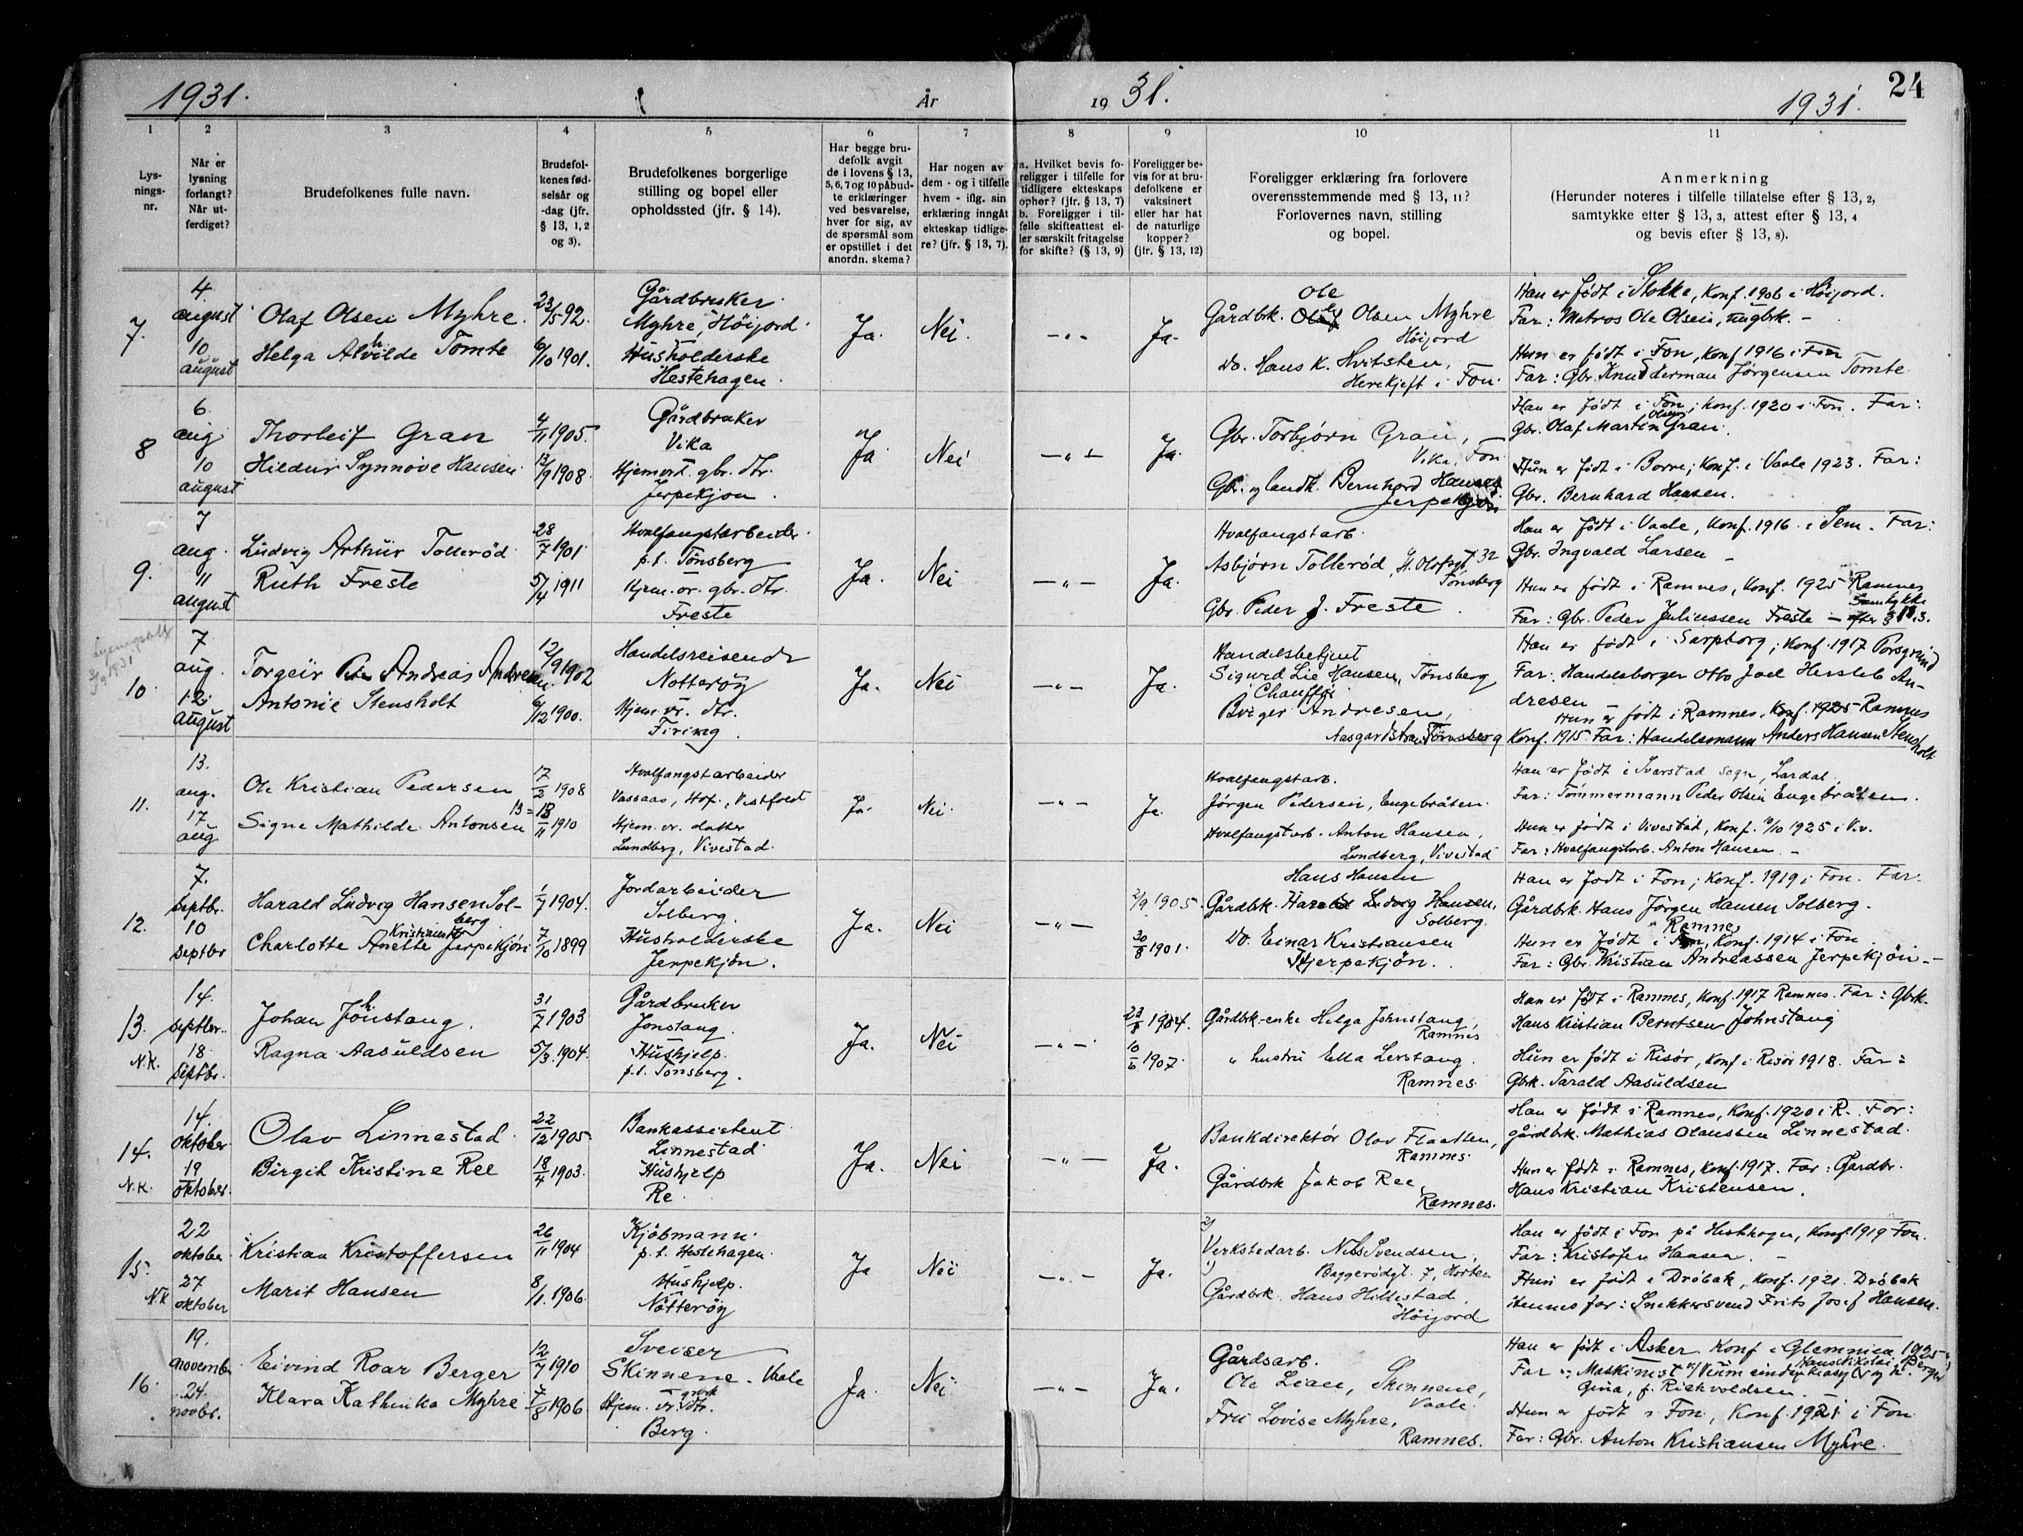 1931.
År
19 31.
1931.
24
1
2
3
4
5
6
7
8
9
10
11
Lys-
nings-
nr.
Når er
lysning
forlangt?
Når ut-
ferdiget?
Brudefolkenes fulle navn.
Brudefol-
kenes fød-
selsår og
-dag (jfr.
§ 13, 1, 2
og 3).
Brudefolkenes borgerlige
stilling og bopel eller
opholdssted (jfr. § 14).
Har begge bru-
defolk avgit
de i lovens § 13,
5, 6, 7 og 10 påbud-
te erklæringer
ved besvarelse,
hver for sig, av
de spørsmål som
er opstillet i det
anordn. skema?
Har nogen av
dem - og i tilfelle
hvem - iflg. sin
erklæring inngått
ekteskap tidlige-
re? (jfr. § 13, 7).
a. Hvilket bevis fo-
religger i tilfelle for
tidligere ekteskaps
ophør? (jfr. § 13, 7)
b. Foreligger i til-
felle skifteattest el-
ler særskilt fritagelse
for skifte? (§ 13, 9)
Foreligger be-
vis for at bru-
defolkene er
vaksinert
eller har hat
de naturlige
kopper?
(jfr. § 13, 12)
Foreligger erklæring fra forlovere
overensstemmende med § 13, 11?
Forlovernes navn, stilling
og bopel.
Anmerkning
(Herunder noteres i tilfelle tillatelse efter § 13, 2,
samtykke efter § 13, 3, attest efter § 13, 4
og bevis efter § 13, 8).
7.
4.
august
10
august
Olaf Olsen Myhre.
Helga Alvhilde Tomte
23/5 92.
6/10 1901.
Gårdbruker
Myhre, Höijord.
Husholderske
Hestehagen.
Ja.
Nei.
-"-
Ja.
Ole
Gårdbk. Olsen Myhre
Höijord
Do. Hans K. Hvitsten,
Herekjeft i Fon.
Han er født i Stokke, Konf. 1906 i Höijord.
Far: Matros Ole Olsen, -
Hun er født i Fon, Konf 1916 i Fon
Far: Gbr. Knut Herman Jørgensen Tomte.
8
6.
aug.
10
august
Thorleif Gran
Hildur Synnøve Hansen
4/11 1905.
13/9 1908.
Gårdbruker
Vika
Hjemv. gbr. dtr.
Jerpekjøn.
Ja
Nei
-"-
Ja.
Gbr. Torbjørn Gran,
Vika, Fon
Gbr. og landh. Bernhard Hansen
Jerpekjøn
Han er født i Fon, Konf. 1920 i Fon. Far:
Gbr. Olaf Martin Olsen Gran.
Hun er født i Borre, Konf. i Vaale 1923. Far:
Gbr. Bernhard Hansen.
9.
7
aug.
11
august
Ludvig Arthur Tollerød
Ruth Freste
28/7 1901.
5/4 1911
Hvalfangstarbeider
p.t. Tønsberg
Hjem. v. gbr. dtr.
Freste
Ja.
Nei
-"-
Ja.
Hvalfangstarb.
Asbjørn Tollerød, St. Olafsgt 32
Tønsberg
Gbr. Peder J. Freste.
Han er født i Vaale, Konf. 1916 i Sem. Far:
Gbr. Ingvald Larsen -
Hun er født i Ramnes, Konf. 1925 Ramnes
Far: Gbr. Peder Juliussen Freste - Samtykke efter § 13.3.
10.
7
aug.
12
august
Torgeir Andreas Andresen
Antonie Stensholt
12/9 1902
6/12 1900.
Handelsreisende
Nøtterøy
Hjem. vr. dtr.
Firing
Ja.
Nei
-"-
Ja.
Handelsbetjent
Sigurd Lie Hansen, Tønsberg
Chauffør
Birger Andresen,
Aasgardstrand Tønsberg
Han er født i Sarpborg, Konf. 1917 Porsgrund
Far: Handelsborger Otto Joel Hersleb An-
dresen -
Hun er født i Ramnes, Konf. 1925 Ramnes
Konf. 1915. Far: Handelsmann Anders Hansen Stensholt
11.
13.
aug.
17
aug
Ole Kristian Pedersen
Signe Mathilde Antonsen
17/2 1908
13 = 13/11 1910
Hvalfangstarbeider
Vassaas, Hof, Vestfold
Hjem. vr. datter
Lundberg, Vivestad.
Ja.
Nei
-"-
Ja.
Hvalfangstarb.
Jørgen Pedersen, Engebråten.
Hvalfangstarb. Anton Hansen,
Lundberg, Vivestad
Han er født i Svarstad sogn, Lardal.
Far: Tømmermann Peder Olsen Engebråten.
Hun er født i Vivestad, Konf. 1925 i Viv.
Far: Hvalfangstarb. Anton Hansen -
12.
7.
septbr.
10
septbr
Harald Ludvig Hansen Sol-
berg.
Charlotte Anette Kristiansen Jerpekjøn
1/7 1904.
7/10 1899
Jordarbeider
Solberg.
Husholderske
Jerpekjøn.
Ja.
Nei
-"-
2/9 1905.
30/8 1901.
Hans Hansen
Gårdbk. Harald Ludvig Hansen,
Solberg.
Do. Einar Kristiansen
Jerpekjøn.
Han er født i Fon, Konf. 1919 i Fon. Far:
Gårdbk. Hans Jörgen Hansen Solberg.
Ramnes
Hun er født i Fon, Konf. 1914 i Fon
Far: Gbr. Kristian Andreassen Jerpekjøn -
13.
N.K.
14.
septbr.
18.
septbr.
Johan Johnstang.
Ragna Aasuldsen
31/7 1903
5/3 1904.
Gårdbruker
Jonstang.
Hushjelp.
p.t. Tønsberg.
Ja.
Nei
-"-
22/8 1904.
10/6 1907.
Gårdbk-enke Helga Johnstang,
Ramnes
" hustru Ella Lerstang.
Ramnes.
Han er født i Ramnes, Konf. 1917 Ramnes. Far: Gbrk.
Hans Kristian Berntsen Johnstang
Hun er født i Risör, Konf i Risör 1918. Far:
Gbrk. Tarald Aasuldsen
14.
N.K.
14.
oktober
19
oktober.
Olav Linnestad.
Birgit Kristine Ree
22/12 1905
18/4 1903.
Bankassistent
Linnestad
Hushjelp
Re.
Ja.
Nei
-"-
Ja.
Bankdirektør Olav Flaatten,
Ramnes.
Gårdbrk Jakob Ree,
Ramnes.
Han er født i Ramnes, Konf. 1920 i R. Far:
gårdbk. Mathias Olaussen Linnestad.
Hun er født i Ramnes, Konf. 1917. Far: Gardbr.
Hans Kristian Kristensen.
15.
N.K
22
oktober
27
oktober
Kristian Kristoffersen
Marit Hansen
26/11 1904
8/1. 1906.
Kjøbmann.
p.t. Hestehagen.
Hushjelp.
Nøtterøy
Ja
Nei
-"-
Ja.
2)
Verkstedarb. Nils Svendsen,
Baggerødgt. 7, Horten
1)
Gårdbrk. Hans Hillestad,
Höijord
Han er født i Fon på Hestehagen, Konf. 1919 Fon.
Far: Kristofen Hansen. -
Hun er født i Drøbak, Konf. 1921. Drøbak
Hennes far: Snekkersvend Frits Josef Hansen.
16.
19.
november
24.
novbr.
Eivind Roar Berger
Klara Kathinka Myhre
12/7 1910
7/8 1906.
Sveiser
Skinnene - Vaale
Hjem. vr. dtr.
Berg.
Ja.
Nei
-"-
Ja.
Gårdsarb.
Ole Lian, Skinnene,
Vaale.
Fru Lovise Myhre,
Ramnes.
Han er født i Asker Konf i Glemmen 1925
Far: Maskinist Hans Nikolai Berger
Gina, f. Rickvoldsen. -
Hun er født i Fon, Konf. 1921 i Fon
Far: Gbr. Anton Kristiansen Myhre.